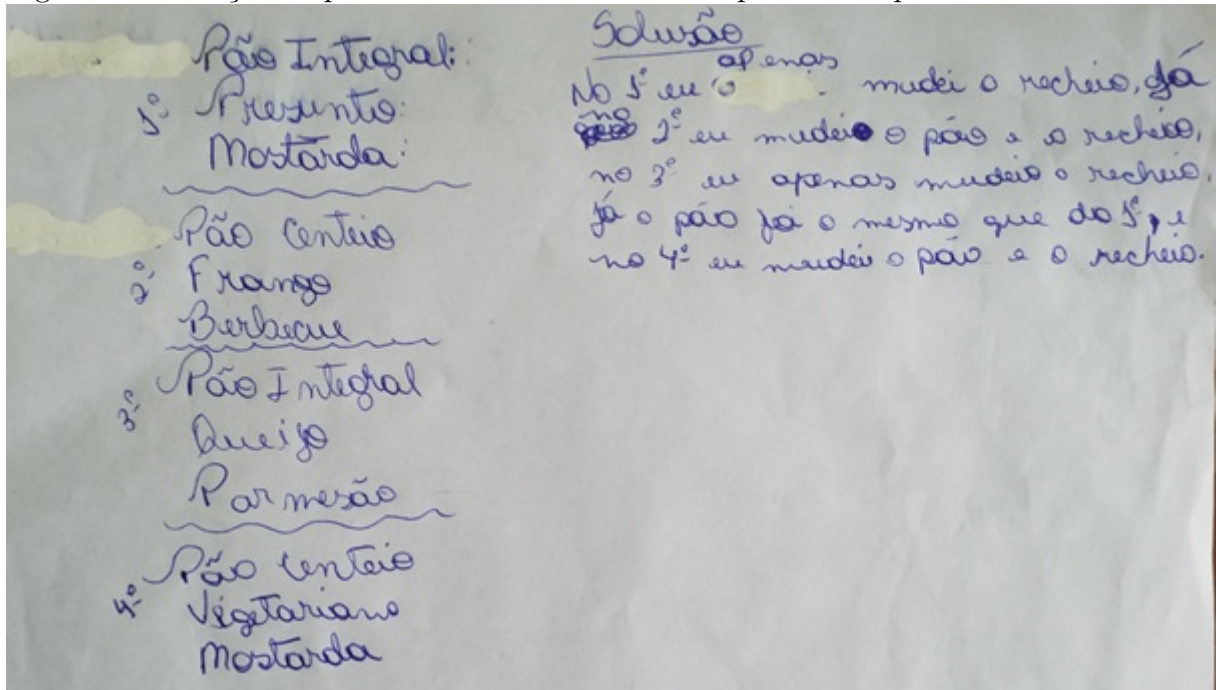 Pão Integral:
1º Presunto:
Mostarda:
Pão Centeio
2º Frango
Berbecue
Pão Integral
3º Queijo
Parmesão
Pão Centeio
4º Vegetariano
Mostarda
Solusão
apenas
No 1º eu mudei o recheio, já
no 2º eu mudei o pão e o recheio,
no 3º eu apenas mudei o recheio,
já o pão foi o mesmo que do 1º, e
no 4º eu mudei o pão e o recheio.